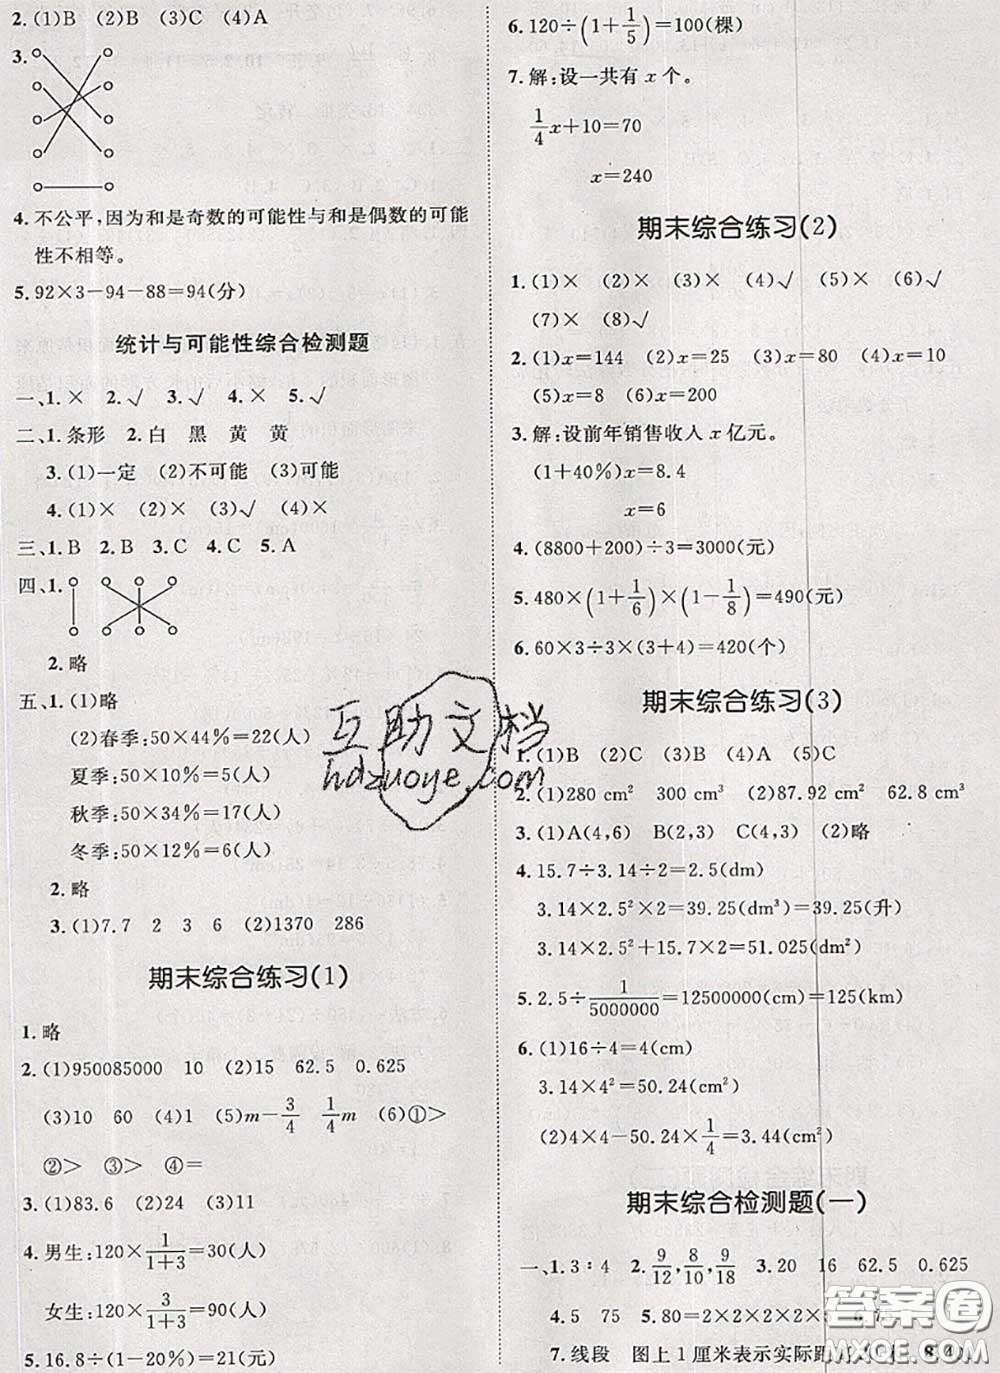 2.(1)B (2)B (3)C (4)A
3.
4. 不公平,因为和是奇数的可能性与和是偶数的可能
性不相等。
5.92×3-94-88=94(分)
统计与可能性综合检测题
一、1.× 2.√ 3.√ 4.× 5.√
二、1.条形 2.白 黑 黄 黄
3.(1)一定 (2)不可能 (3)可能
4.(1)× (2)× (3)√ (4)×
三、1.B 2.B 3.C 4.C 5.A
四、1.
2.略
五、1.(1)略
(2)春季:50×44%=22(人)
夏季:50×10%=5(人)
秋季:50×34%=17(人)
冬季:50×12%=6(人)
2.略
3.(1)7.7 2 3 6 (2)1370 286
期末综合练习(1)
1.略
2.(1)950085000 10 (2)15 62.5 0.625
(3)10 60 (4)1 (5)m-3/4 1/4m (6)①>
②> ③> ④=
3.(1)83.6 (2)24 (3)11
4.男生:120×1/(1+3)=30(人)
女生:120×3/(1+3)=90(人)
5.16.8÷(1-20%)=21(元)
6.120÷(1+1/5)=100(棵)
7.解:设一共有 x 个。
1/4x+10=70
x=240
期末综合练习(2)
1.(1)× (2)× (3)× (4)√ (5)× (6)√
(7)× (8)√
2.(1)x=144 (2)x=25 (3)x=80 (4)x=10
(5)x=8 (6)x=200
3.解:设前年销售收入 x 亿元。
(1+40%)x=8.4
x=6
4.(8800+200)÷3=3000(元)
5.480×(1+1/6)×(1-1/8)=490(元)
6.60×3÷3×(3+4)=420(个)
期末综合练习(3)
1.(1)B (2)C (3)B (4)A (5)C
2.(1)280 cm² 300 cm³ (2)87.92 cm² 62.8 cm³
3.(1)A(4,6) B(2,3) C(4,3) (2)略
4.15.7÷3.14÷2=2.5(dm)
3.14×2.5²×2=39.25(dm³)=39.25(升)
3.14×2.5²+15.7×2=51.025(dm²)
5.2.5÷1/5000000=12500000(cm)=125(km)
6.(1)16÷4=4(cm)
3.14×4²=50.24(cm²)
(2)4×4-50.24×1/4=3.44(cm²)
期末综合检测题(一)
一、1.3∶4 2.9/12,8/10,9/18 3.20 16 62.5 0.625
4.5 75 5.80=2×2×2×2×
7.线段 图上 1 厘米表示实际距
互助文档
hdzuoye.com
答案圈